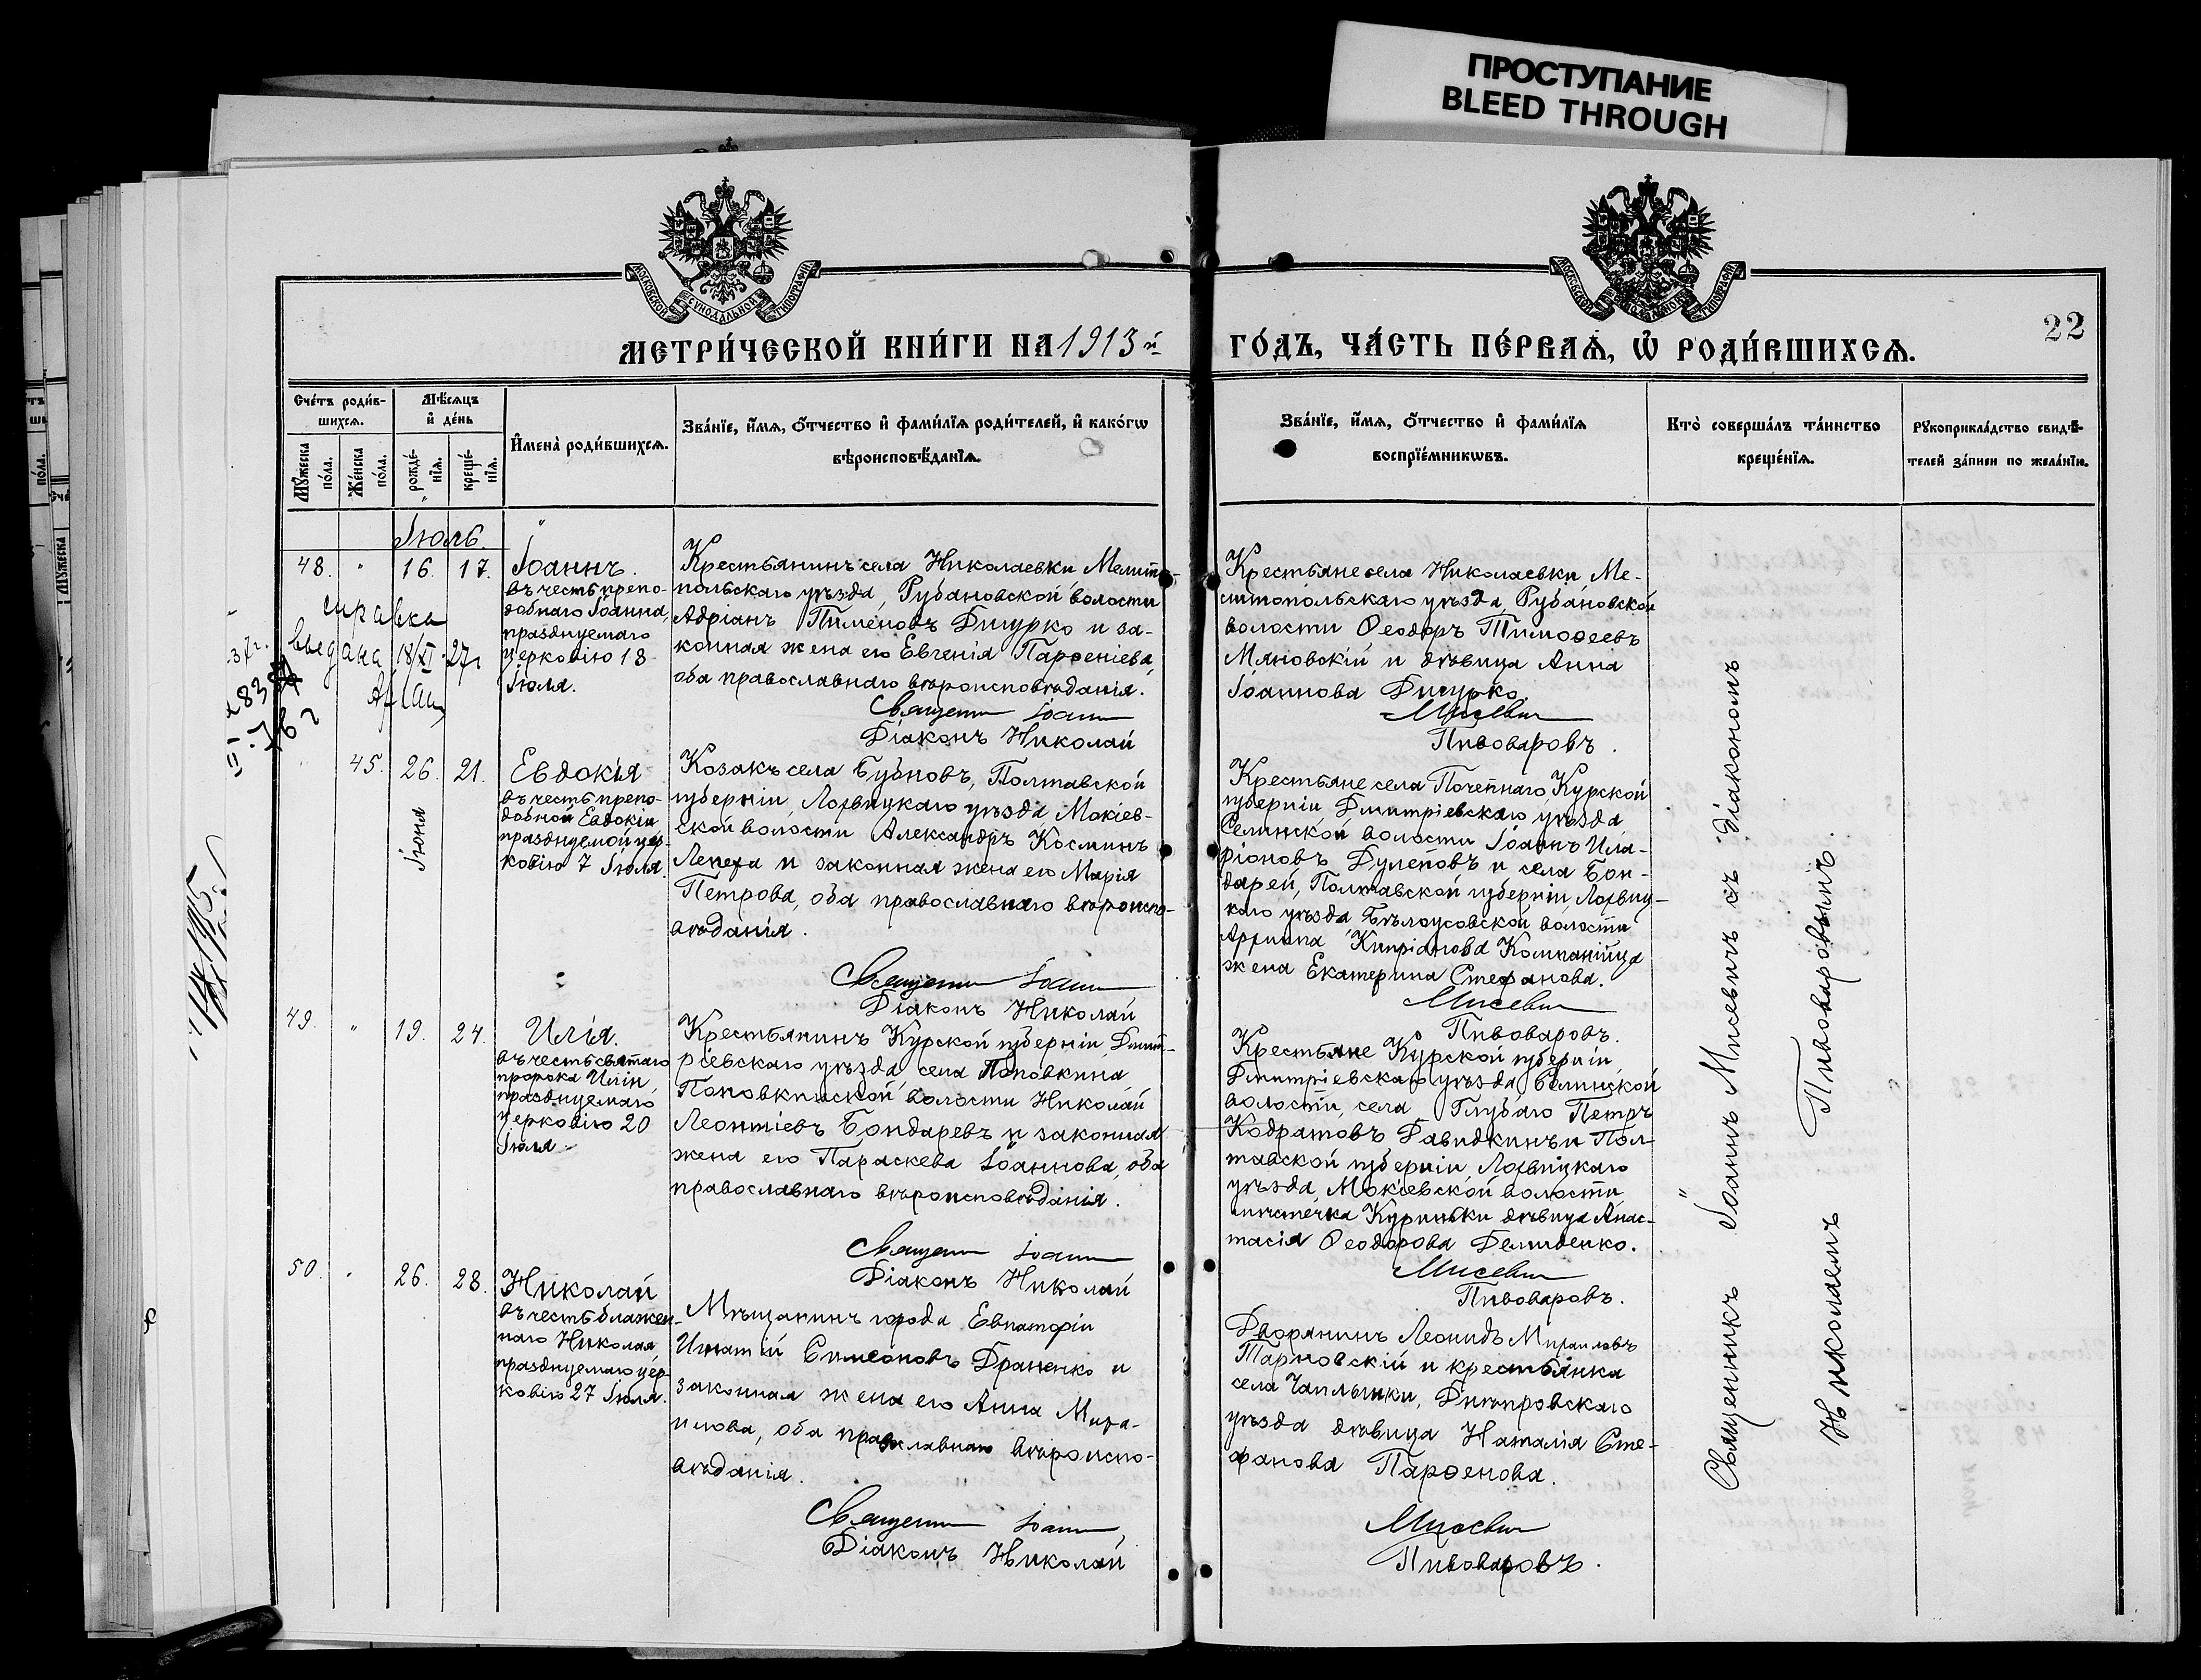 ПРОСТУПАНИЕ
BLEED THROUGH
МОСКОВСКОЙ СѴНОДАЛЬНОЙ ТИПОГРАФІИ
МОСКОВСКОЙ СѴНОДАЛЬНОЙ ТИПОГРАФІИ
22
МЕТРИ́ЧЕСКОЙ КНИ́ГИ НА 1913 й
ГО́ДЪ, ЧА́СТЬ ПЕ́РВАѦ, Ѡ҆ РОДИ́ВШИХСѦ.
Сче́тъ роди́в-
шихсѧ.
Мꙋ́жеска
по́ла.
Же́нска
по́ла.
Мѣ́сѧцъ
и҆ де́нь
рожде́-
нїѧ.
креще́-
нїѧ.
И҆мена̀ роди́вшихсѧ.
Зва́нїе, и҆́мѧ, ѻ҆́тчество и҆ фами́лїѧ роди́телей, и҆ како́гѡ
вѣроисповѣ́данїѧ.
Зва́нїе, и҆́мѧ, ѻ҆́тчество и҆ фами́лїѧ
воспрїе́мникѡвъ.
Кто̀ соверша́лъ та́инство
креще́нїѧ.
Рꙋкоприкла́дство свидѣ́-
телей за́писи по жела́нїю.
Іюль.
48. " 16. 17.
Іоаннъ.
въ честь препо-
добнаго Іоанна,
празднуемаго
церковію 18
Іюля.
справка
выдана 18/XI 27г
Крестьянинъ села Николаевки Мелито-
польскаго уѣзда, Рубановской волости
Адріанъ Пименовъ Дигурко и за-
конная жена его Евгенія Парѳеніева,
оба православнаго вѣроисповѣданія.
Священ Іоанн
Діаконъ Николай
Крестьяне села Николаевки, Ме-
литопольскаго уѣзда, Рубановской
волости Ѳеодоръ Тимоѳеевъ
Мяновскій и дѣвица Анна
Іоаннова Дигурко.
Мисевич
Пивоваровъ.
45. 26. 21.
Іюня
Евдокія
въ честь препо-
добной Евдокіи
празднуемой цер-
ковію 7 Іюля.
Козакъ села Бубновъ, Полтавской
губерніи Лохвицкаго уѣзда Мокіев-
ской волости Александръ Косминъ
Лепеха и законная жена его Марія
Петрова, оба православнаго вѣроиспо-
вѣданія.
Священ Іоанн
Діаконъ Николай
Крестьяне села Почепнаго, Курской
губерніи Дмитріевскаго уѣзда
Селинской волости Іоаннъ Ила-
ріоновъ Дулеповъ и села Бон-
дарей, Полтавской губерніи, Лохвиц-
каго уѣзда Бѣлоусовской волости
Архипа Кипріанова Компанійца
жена Екатерина Стефанова.
Мисевич
Пивоваровъ.
49. " 19. 24.
Илія.
въ честь святаго
пророка Иліи,
празднуемаго
церковію 20
Іюля.
Крестьянинъ Курской губерніи, Дмит-
ріевскаго уѣзда, села Поповкина,
Поповкинской волости Николай
Леонтіевъ Бондаревъ и законная
жена его Параскева Іоаннова, оба
православнаго вѣроисповѣданія.
Священ Іоанн
Діаконъ Николай
Крестьяне Курской губерніи,
Дмитріевскаго уѣзда, Селинской
волости, села Глубаго Петръ
Кодратовъ Давидкинъ и Пол-
тавской губерніи Лохвицкаго
уѣзда, Мокіевской волости
мѣстечка Куриньки дѣвица Анас-
тасія Ѳеодорова Демиденко.
Мисевич
Пивоваровъ.
50. " 26. 28.
Николай
въ честь блажен-
наго Николая
празднуемаго цер-
ковію 27 Іюля.
Мѣщанинъ города Евпаторіи
Игнатій Симеоновъ Драненко и
законная жена его Анна Миха-
илова, оба православнаго вѣроиспо-
вѣданія.
Священ Іоанн
Діаконъ Николай
Дворянинъ Леонидъ Михаиловъ
Тарновскій и крестьянка
села Чаплынки, Днѣпровскаго
уѣзда дѣвица Наталія Сте-
фанова Парѳенова.
Мисевич
Пивоваровъ.
Священникъ Іоаннъ Мисевичъ съ діакономъ
Николаемъ Пивоваровымъ.